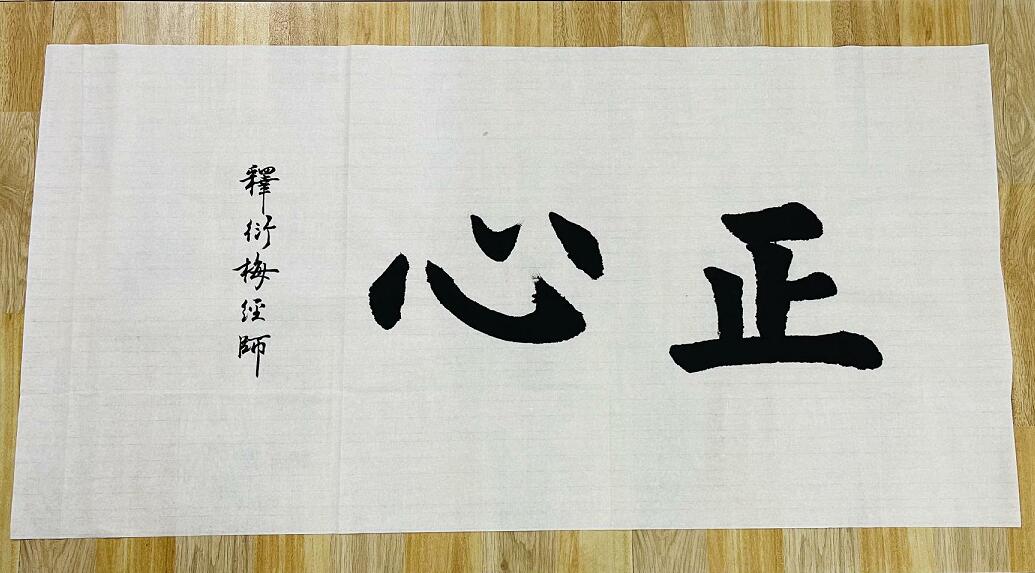 正心
釋衍梅經師